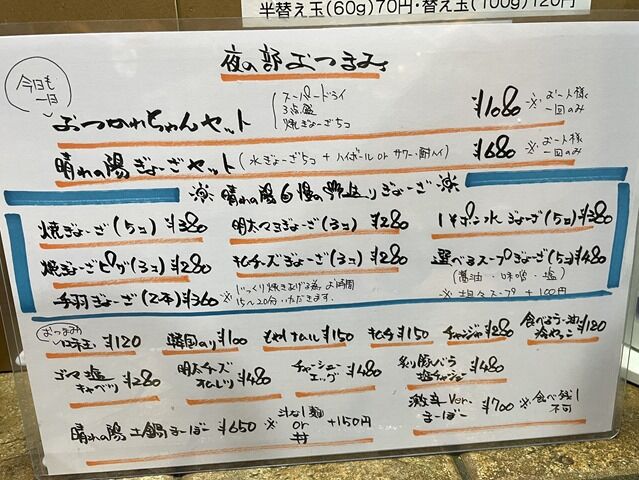 半替え玉(60g)70円・替え玉(100g)120円
夜の部おつまみ
今日も一日
おつかれちゃんセット (スーパードライ 3点盛 焼ぎょーざ5コ ¥1080 ※お一人様一回のみ
晴れの陽ぎょーざセット (水ぎょーざ5コ + ハイボール or サワー・酎ハイ) ¥680 ※お一人様一回のみ
※ 晴れの陽自慢の野送りぎょーざ ※
焼ぎょーざ(5コ) ¥380 明太マヨぎょーざ(3コ) ¥280 ポン水ぎょーざ(5コ) ¥380
焼ぎょーざピザ(3コ) ¥280 チーズぎょーざ(3コ) ¥280 選べるスープぎょーざ(5コ) ¥480
(醤油・味噌・塩)
手羽ぎょーざ(2本) ¥360 ※じっくり焼きあげる為、お時間15〜20分いただきます。 ※担々スープ +100円
おつまみ味玉 ¥120 韓国のり ¥100 もやしナムル ¥150 キムチ ¥150 チャーシュー ¥280 食べるラー油冷やっこ ¥120
ゴマ塩キャベツ ¥280 明太チーズオムレツ ¥480 チャーシューエッグ ¥480 炙り豚バラ塩チャーシュー ¥480
激辛Ver.まーぼー ¥700 ※食べ残し不可
晴れの陽土鍋まーぼー ¥650 ※汁なし麺 or 丼 +150円